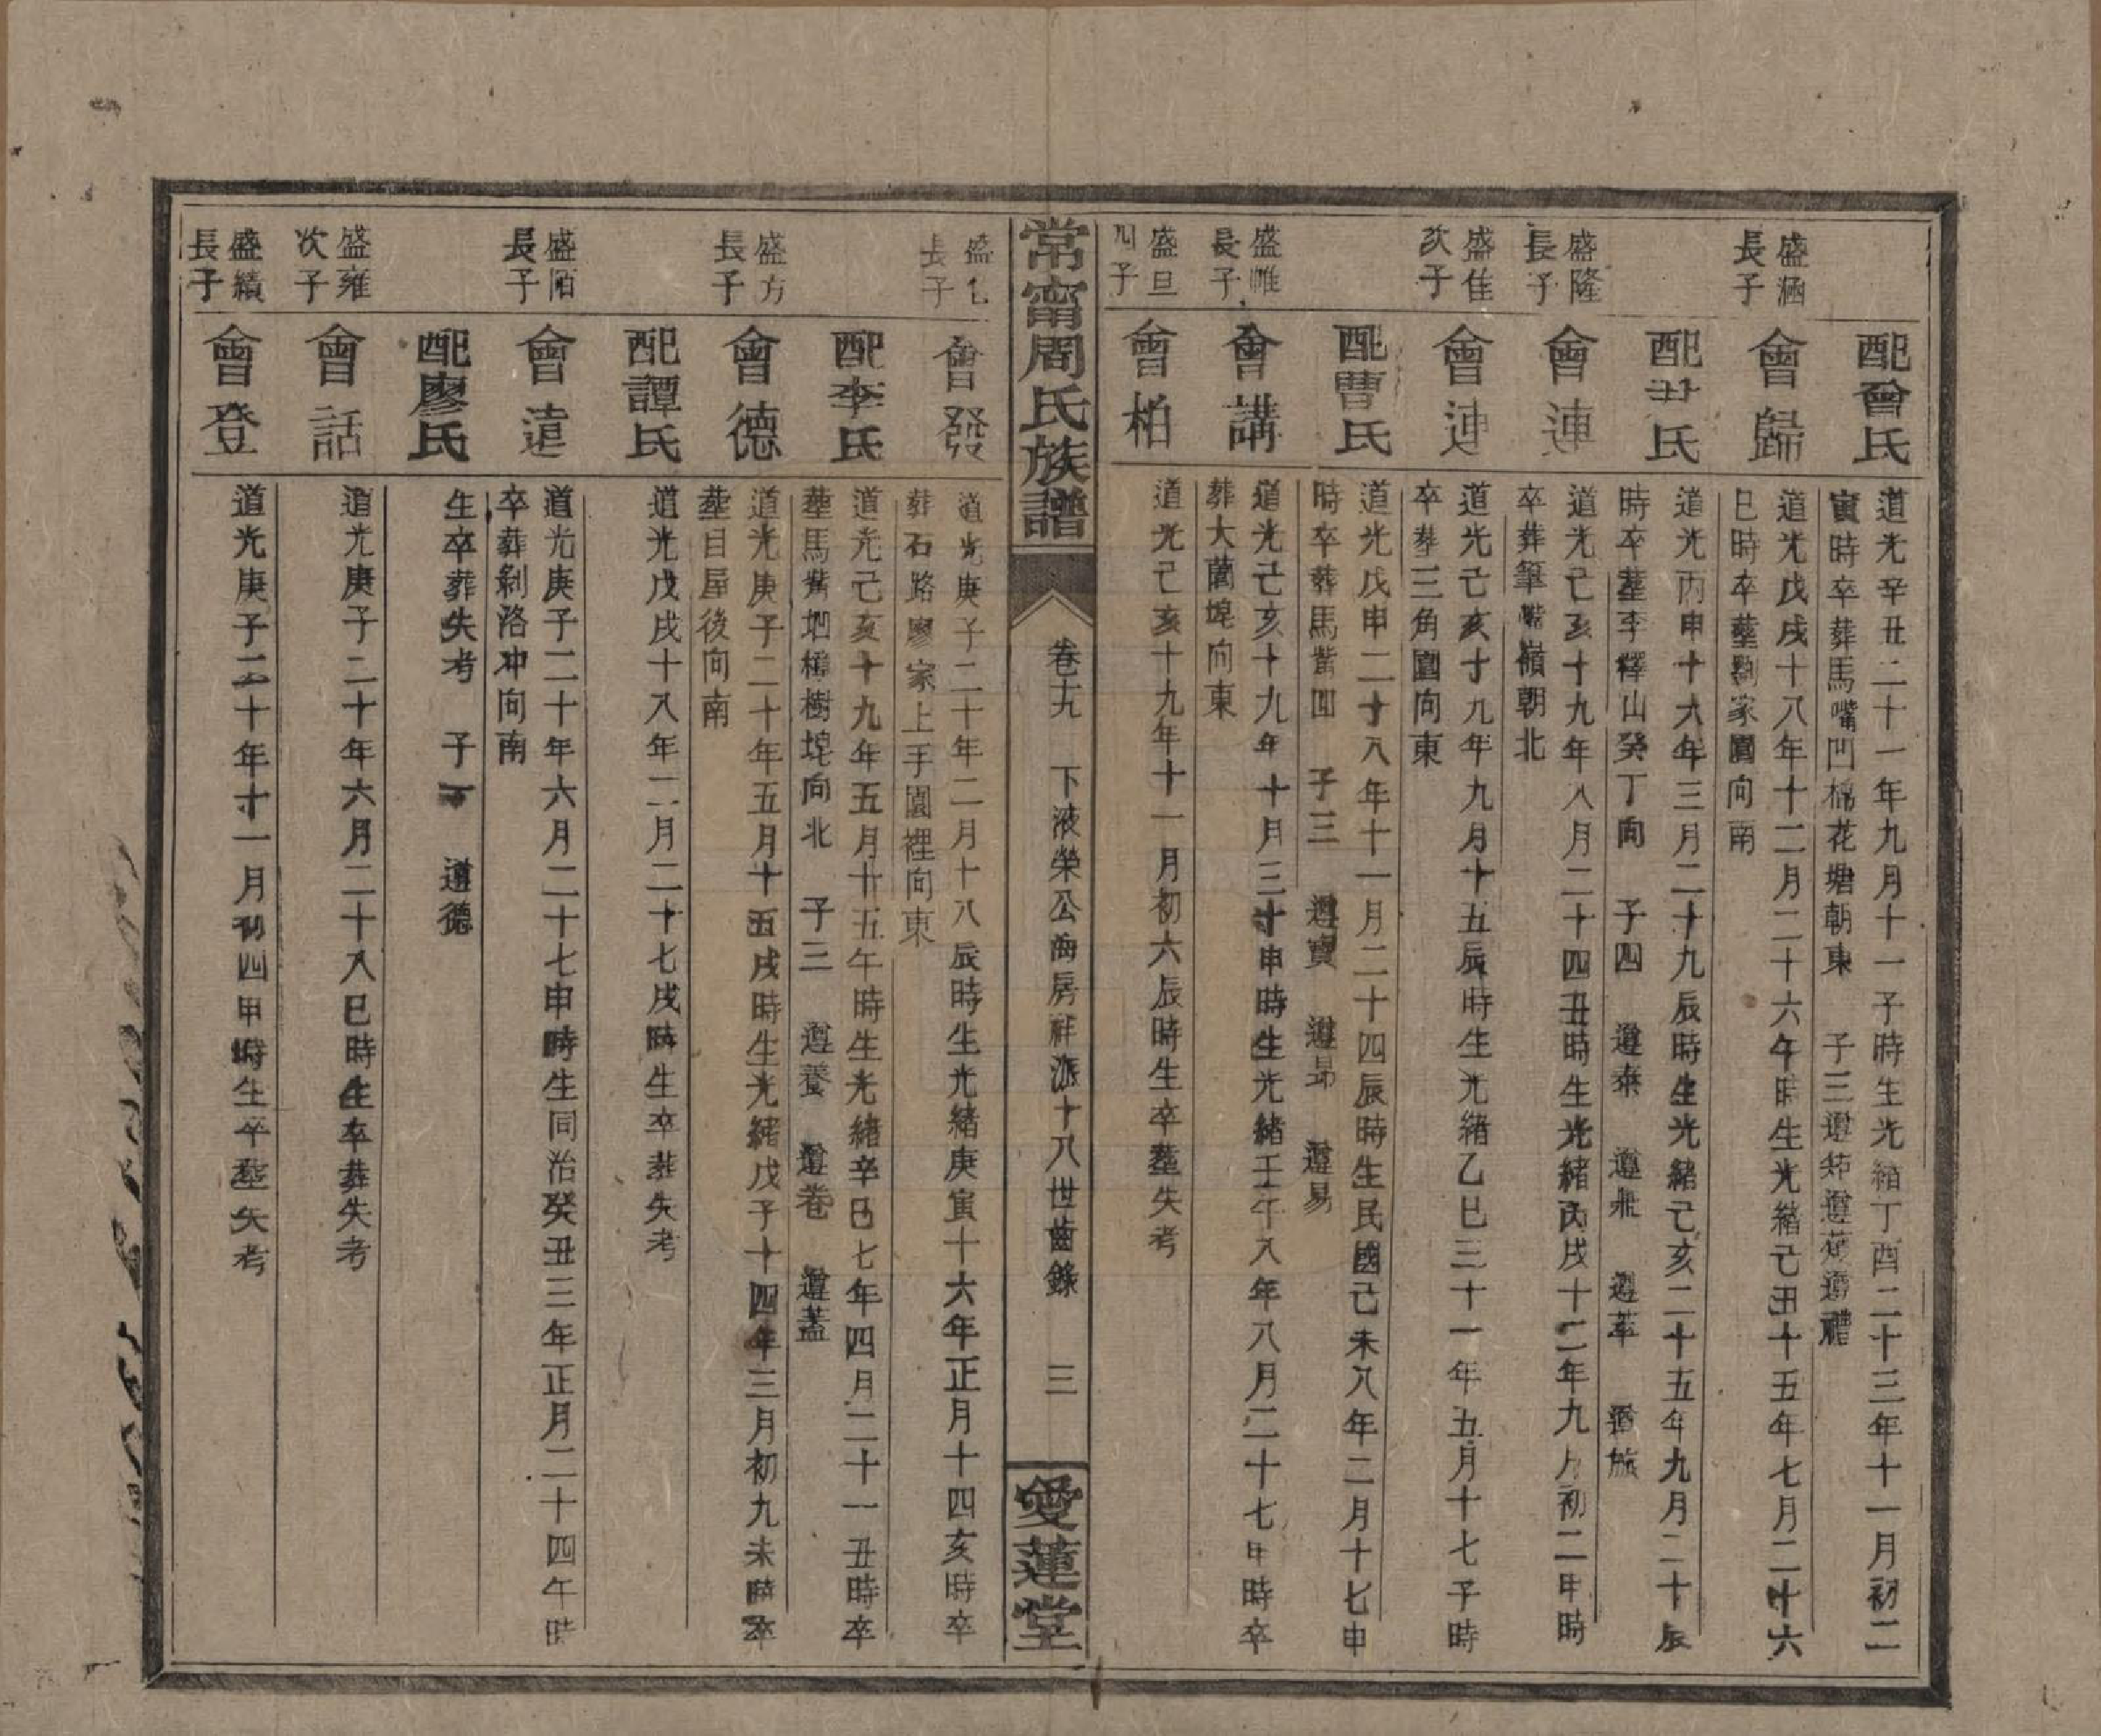 配會氏
道光辛丑二十一年九月十一子時生光緒丁酉二十三年十一月初二
寅時卒葬馬嘴凹棉花塘朝東 子三遵 遵 遵禮
盛涵長子
會歸
道光戊戌十八年十二月二十六午時生光緒己丑十五年七月二十六
巳時卒塟 家園向南
配尹氏
道光丙申十六年三月二十九辰時生光緒己亥二十五年九月二十辰
時卒塟李 山癸丁向 子四 遵泰 遵鼎 遵萃 遵旅
盛隆長子
會連
道光己亥十九年八月二十四丑時生光緒丙戌十二年九月初二申時
卒葬筆嘴嶺朝北
盛佳次子
會
道光己亥十九年九月十五辰時生光緒乙巳三十一年五月十七子時
卒葬三角園向東
配曹氏
道光戊申二十八年十一月二十四辰時生民國己未八年二月十七申
時卒葬馬嘴凹 子三 遵寶 遵昻 遵易
盛帷長子
會講
道光己亥十九年十月三十申時生光緒壬午八年八月二十七申時卒
葬大薗埠向東
盛旦四子
會柏
道光己亥十九年十一月初六辰時生卒塟失考
常甯周氏族譜
卷十九 下液榮公 房祥派十八世齒錄 三
愛蓮堂
盛 長子
會發
道光庚子二十年二月十八辰時生光緒庚寅十六年正月十四亥時卒
葬石路廖家上手園裡向東
配李氏
道光己亥十九年五月廿五午時生光緒辛巳七年四月二十一丑時卒
塟馬嘴 樹埠向北 子三 遵養 遵卷 遵蓋
盛方長子
會德
道光庚子二十年五月十五戌時生光緒戊子十四年三月初九未時卒
塟目屋後向南
配譚氏
道光戊戌十八年二月二十七戌時生卒葬失考
盛陌長子
會遠
道光庚子二十年六月二十七申時生同治癸丑三年正月二十四午時
卒葬剝洛冲向南
配廖氏
生卒葬失考 子一 遵德
盛雍次子
會話
道光庚子二十年六月二十八巳時生卒葬失考
盛績長子
會登
道光庚子二十年十一月初四甲時生卒塟失考